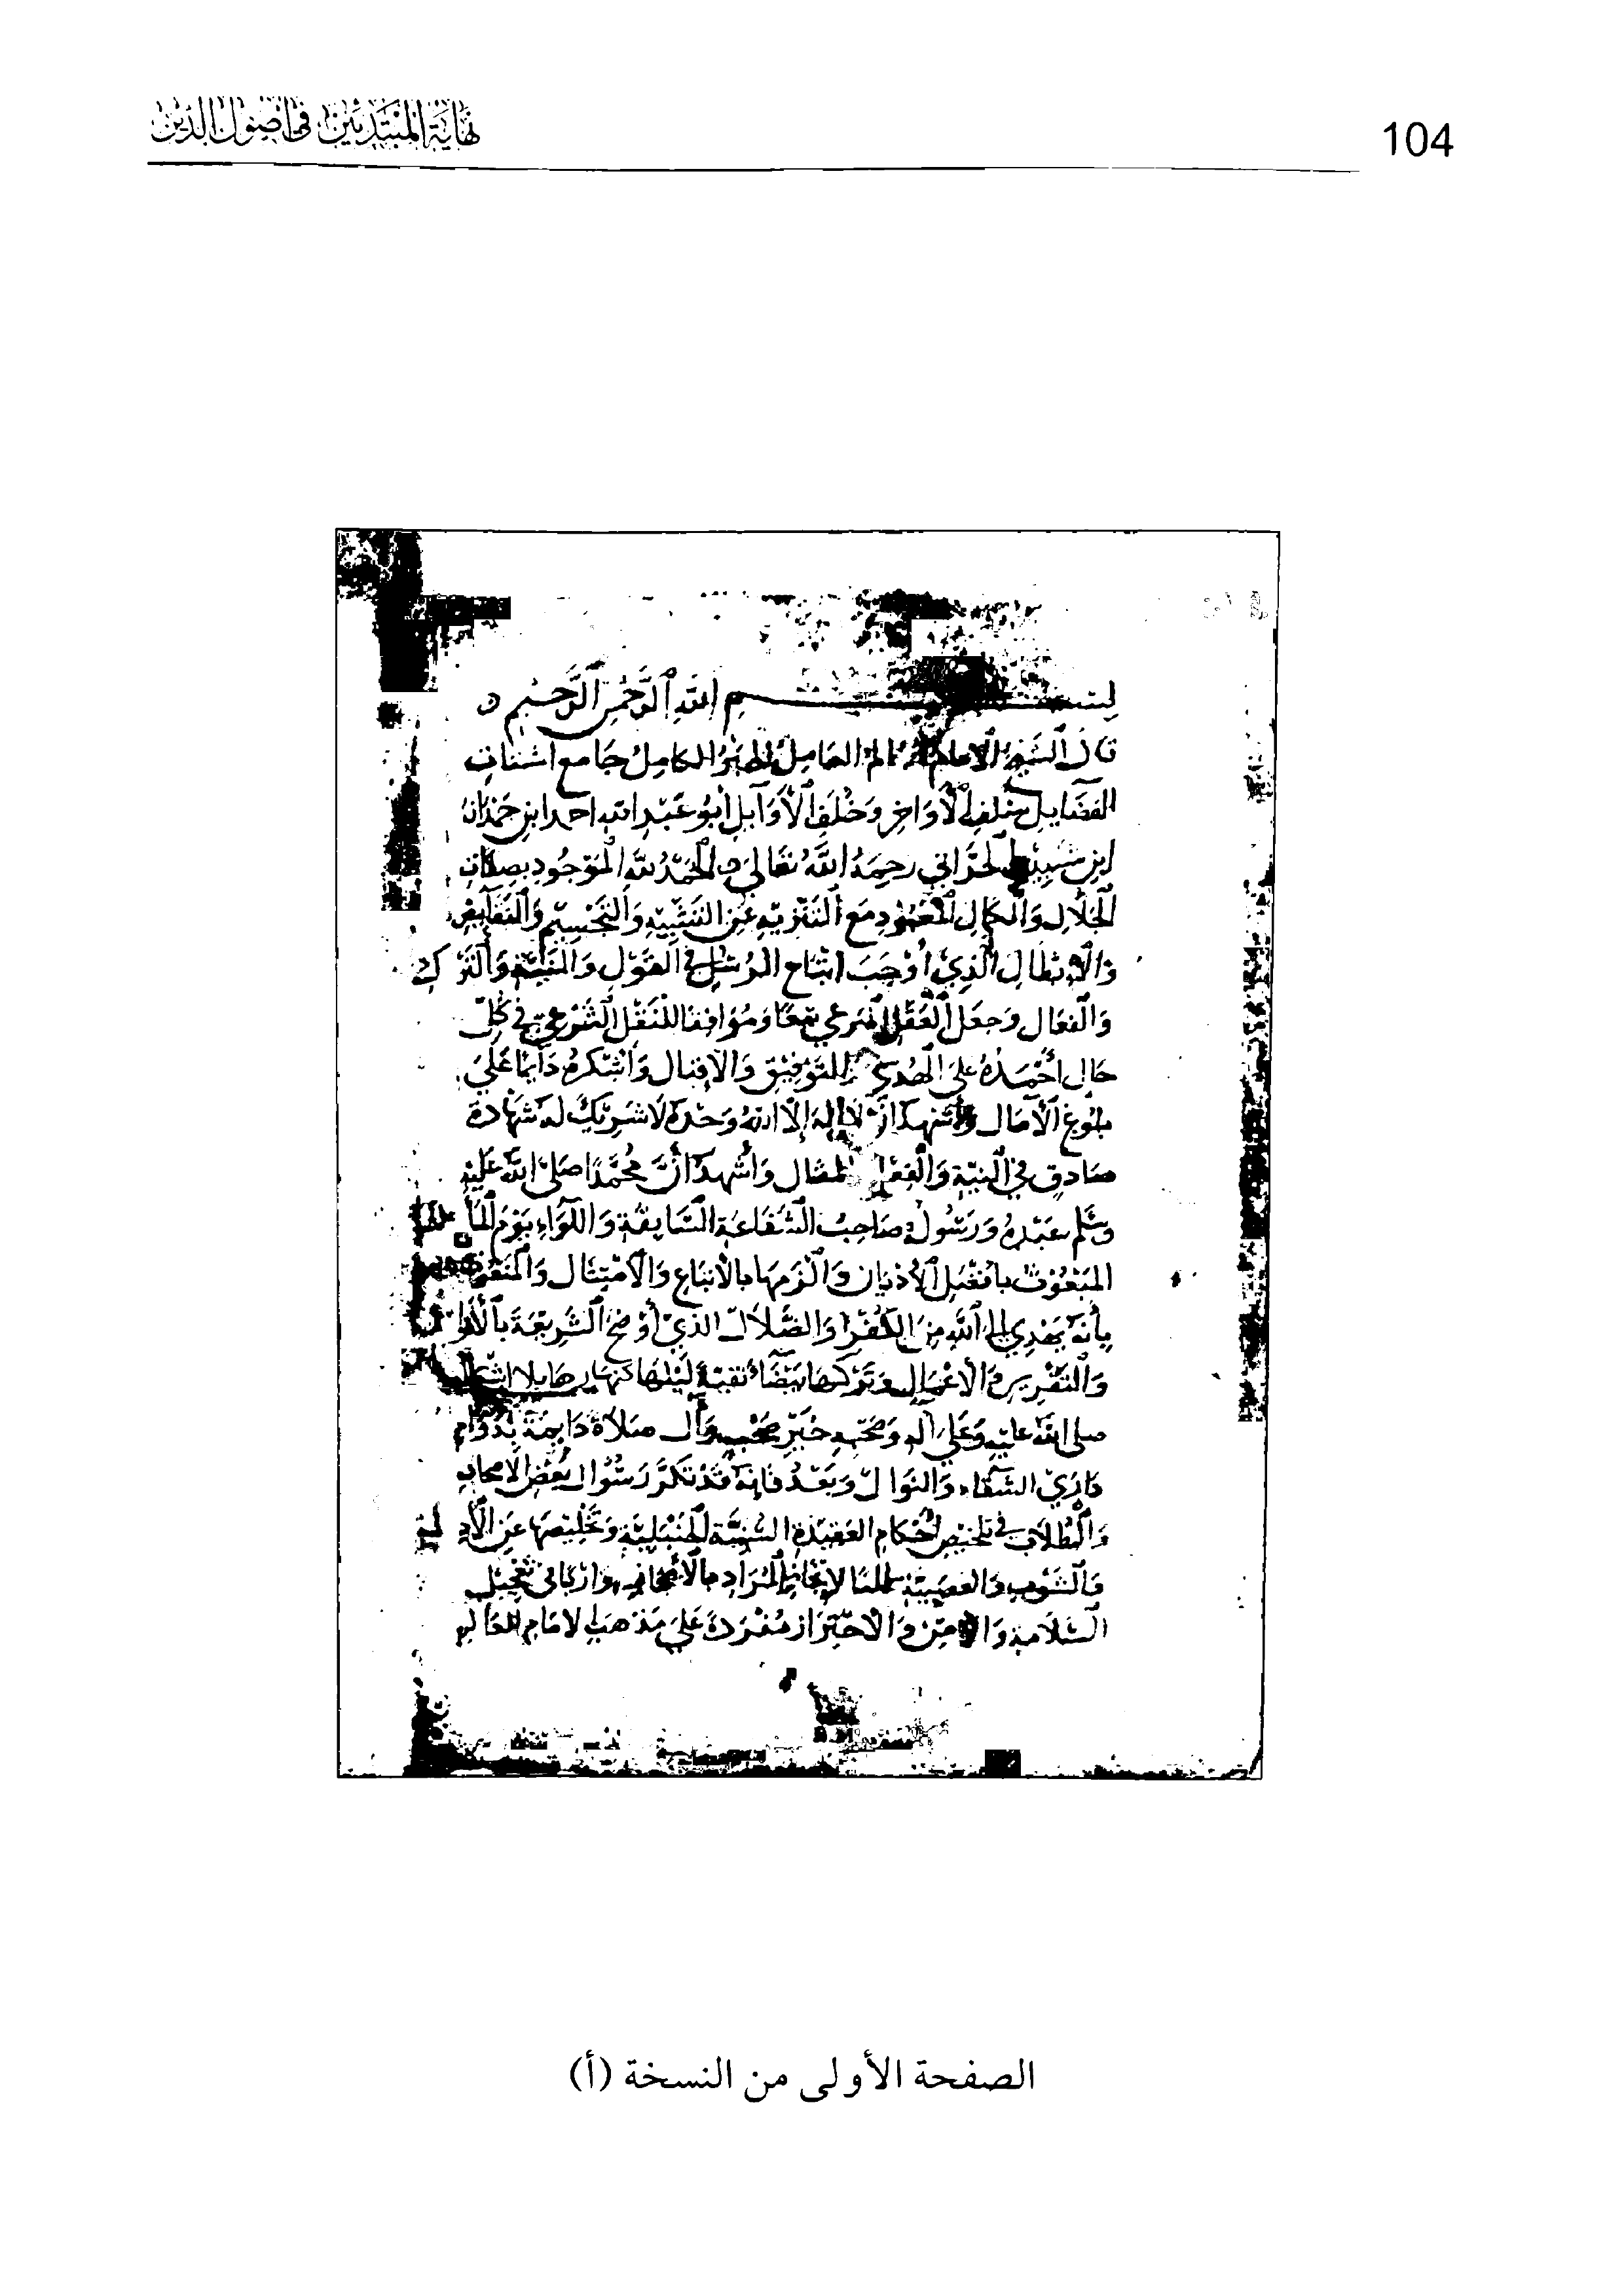 104
نهاية المبتدئين في أصول الدين
بسم الله الرحمن الرحيم
قال الشيخ الامام العالم العامل الحبر الكامل جامع اشتات
الفضايل خلف الأواخر وخلف الأوايل أبو عبد الله احمد ابن حمدان
ابن شبيب الحراني رحمه الله تعالى الحمد لله الموجود بصفات
الجلال والكمال المعبود مع التنزيه عن التشبيه والتجسيم والنقايص
والابطال الذي أوجب اتباع الرسل في القول والنية والترك
والفعال وجعل العقل المرعي تبعا وموافقا للنقل الشرعي في كل
حال أحمده على الهدى للتوفيق والاقبال وأشكره دايما على
بلوغ الآمال وأشهد ان لا إله إلا الله وحده لا شريك له شهادة
صادق في النية والفعل والمقال وأشهد أن محمدا صلى الله عليه
وسلم عبده ورسوله صاحب الشفاعة السابقة واللواء يوم
المبعوث بأفضل الأديان وألزمها بالاتباع والامتثال
بأنه يهدي إلى الله من الكفر والضلال الذي أوضح الشريعة
والتقرير والاعمال وتركها بيضاء نقية ليلها كنهارها بلا
صلى الله عليه وعلى آله وصحبه خير صحب وآل صلاة دايمة بدوام
داري الشقاء والنوال وبعد فإنه قد تكرر سؤال بعض الاصحاب
والطلاب في تلخيص أحكام العقيدة السنية الحنبلية وتخليصها عن
والشوب والعصبية
السلامة والأمن والاحتراز مفردة على مذهب الامام العالم
الصفحة الأولى من النسخة (أ)